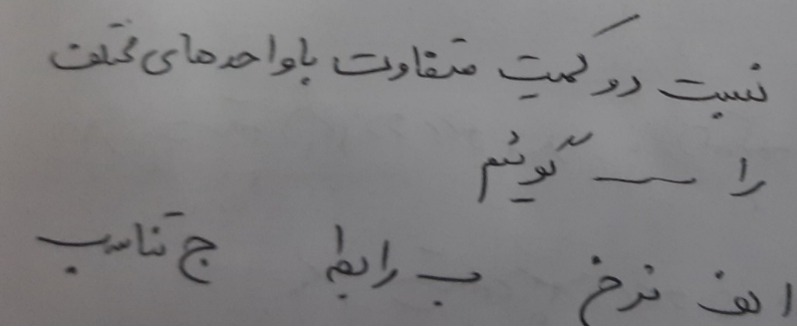 نسبت دو کمیت متفاوت با واحدهای مختلف
را — گوئیم
الف نرخ ب رابطه ج تناسب